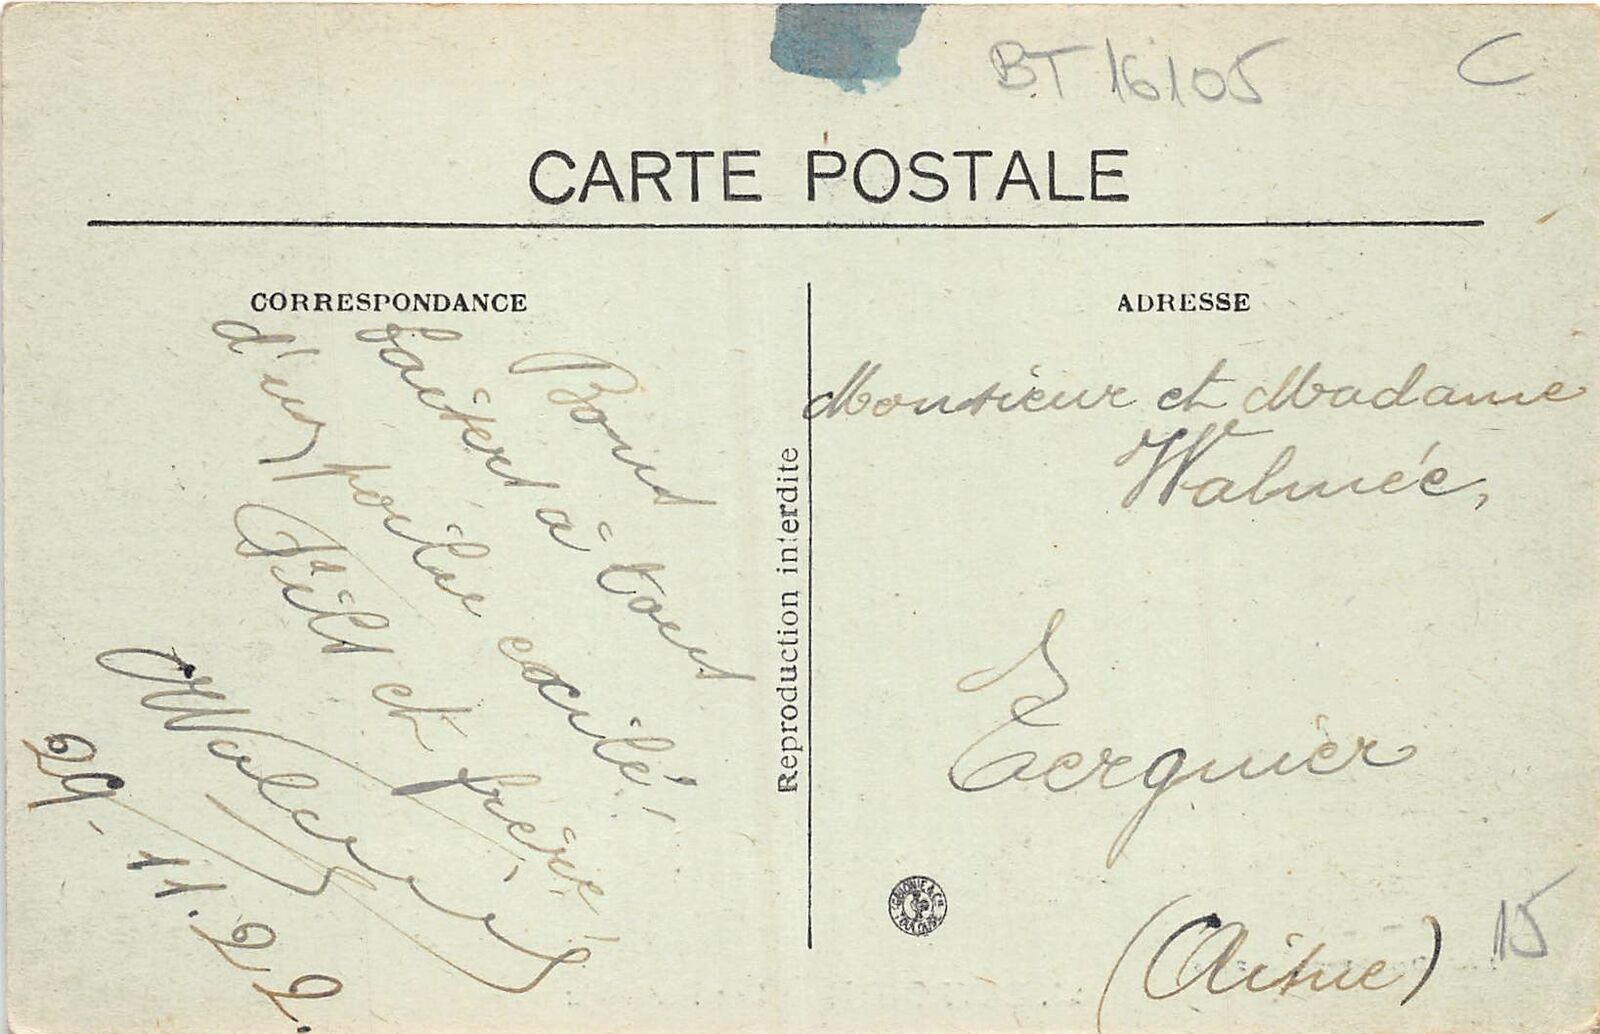 BT 16105
C
CARTE POSTALE
CORRESPONDANCE
Bons
baisers à tous
d'un poilu exilé!
Fils et frère!
29.11.22.
Reproduction interdite
ADRESSE
Monsieur et Madame
Walmée,
à
Tergnier
(Aisne)
15